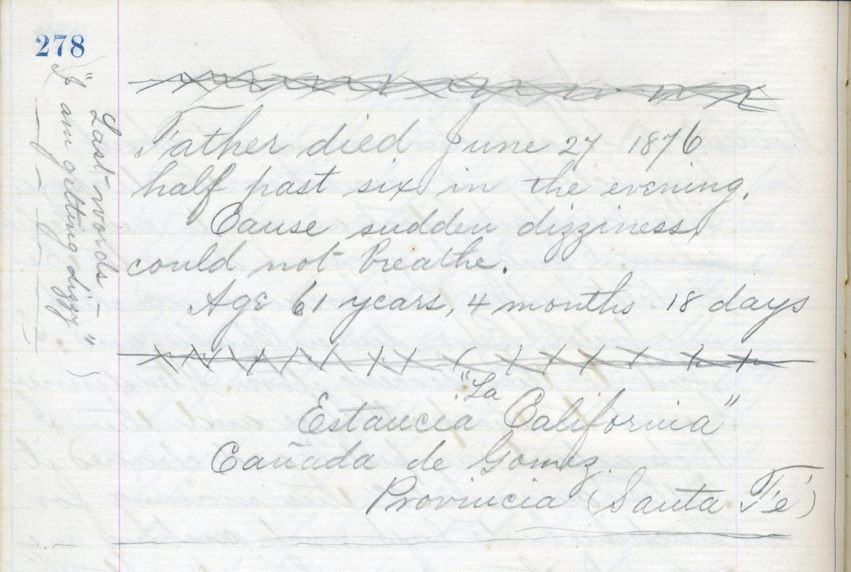 278
Last words -
"I am getting dizzy"
Father died June 27 1876
half past six in the evening.
Cause sudden dizziness,
could not breathe.
Age 61 years, 4 months 18 days
"La
Estancia California"
Cañada de Gomez.
Provincia (Santa Fé)